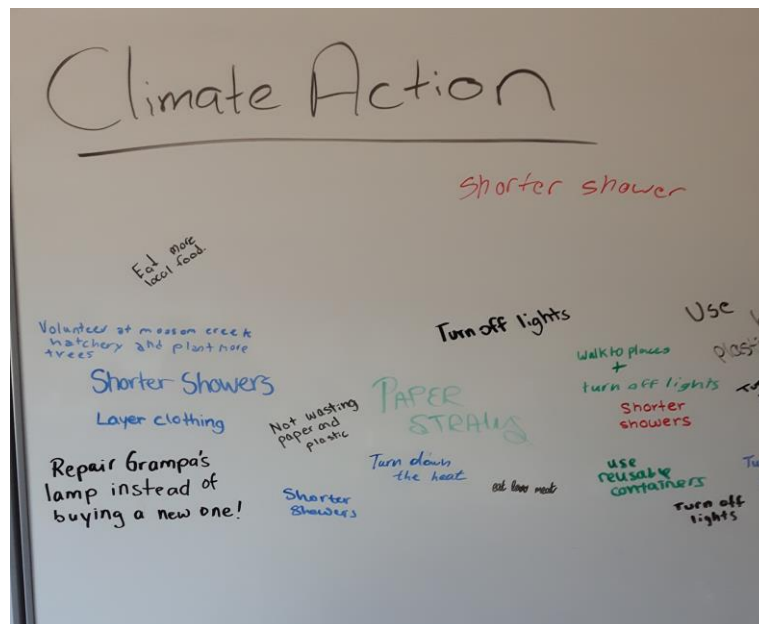 Climate Action
Shorter shower
Eat more
local food.
Volunteer at mossom creek
hatchery and plant more
trees
Shorter Showers
Layer clothing
Repair Grampa's
lamp instead of
buying a new one!
Not wasting
paper and
plastic
Shorter
Showers
PAPER
STRAWS
Turn down
the heat
Turn off lights
eat less meat
Use
walk to places
+
turn off lights
Shorter
showers
use
reusable
containers
Turn off
lights